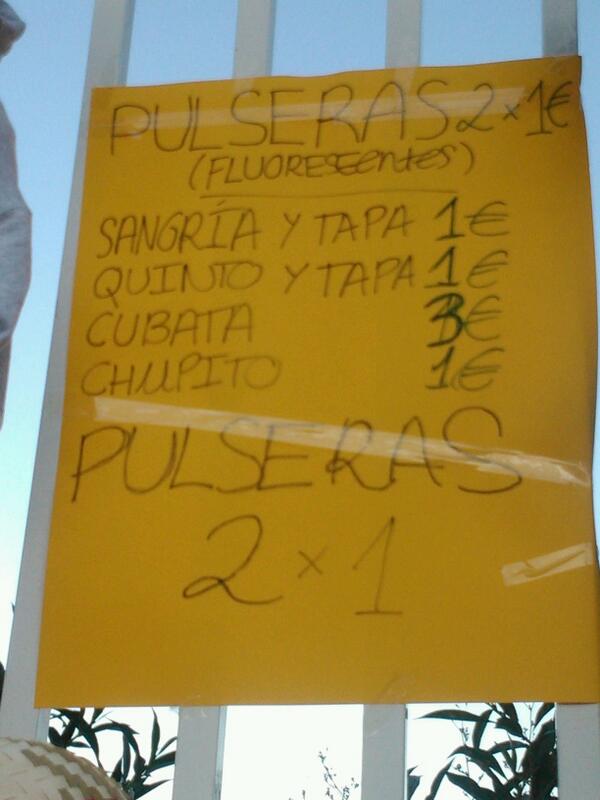 PULSERAS 2x1€
(FLUORESEentes)
SANGRÍA Y TAPA 1€
QUINTO Y TAPA 1€
CUBATA 3€
CHUPITO 1€
PULSERAS
2x1